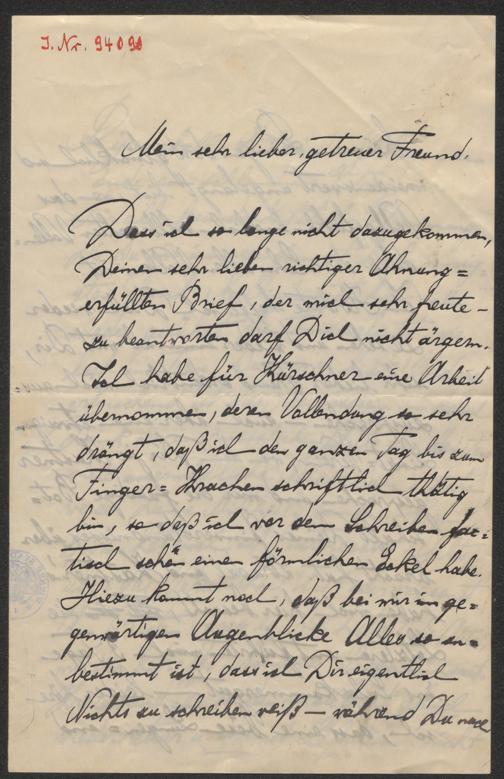 J. Nr. 94090
Mein sehr lieber, getreuer Freund.
Dass ich so lange nicht dazugekommen,
Deinen sehr lieben richtiger Ahnung=
erfüllten Brief, der mich sehr freute -
zu beantworten darf Dich nicht ärgern.
Ich habe für Kürschner eine Arbeit
übernommen, deren Vollendung so sehr
drängt, daß ich den ganzen Tag bis zum
Finger= Krachen schriftlich thätig
bin, so daß ich vor dem Schreiben fac=
tisch schon einen förmlichen Eckel habe.
Hiezu kommt noch, daß bei mir im ge=
genwärtigen Augenblicke Alles so un=
bestimmt ist, dass ich Dir eigentlich
Nichts zu schreiben weiß — während Du